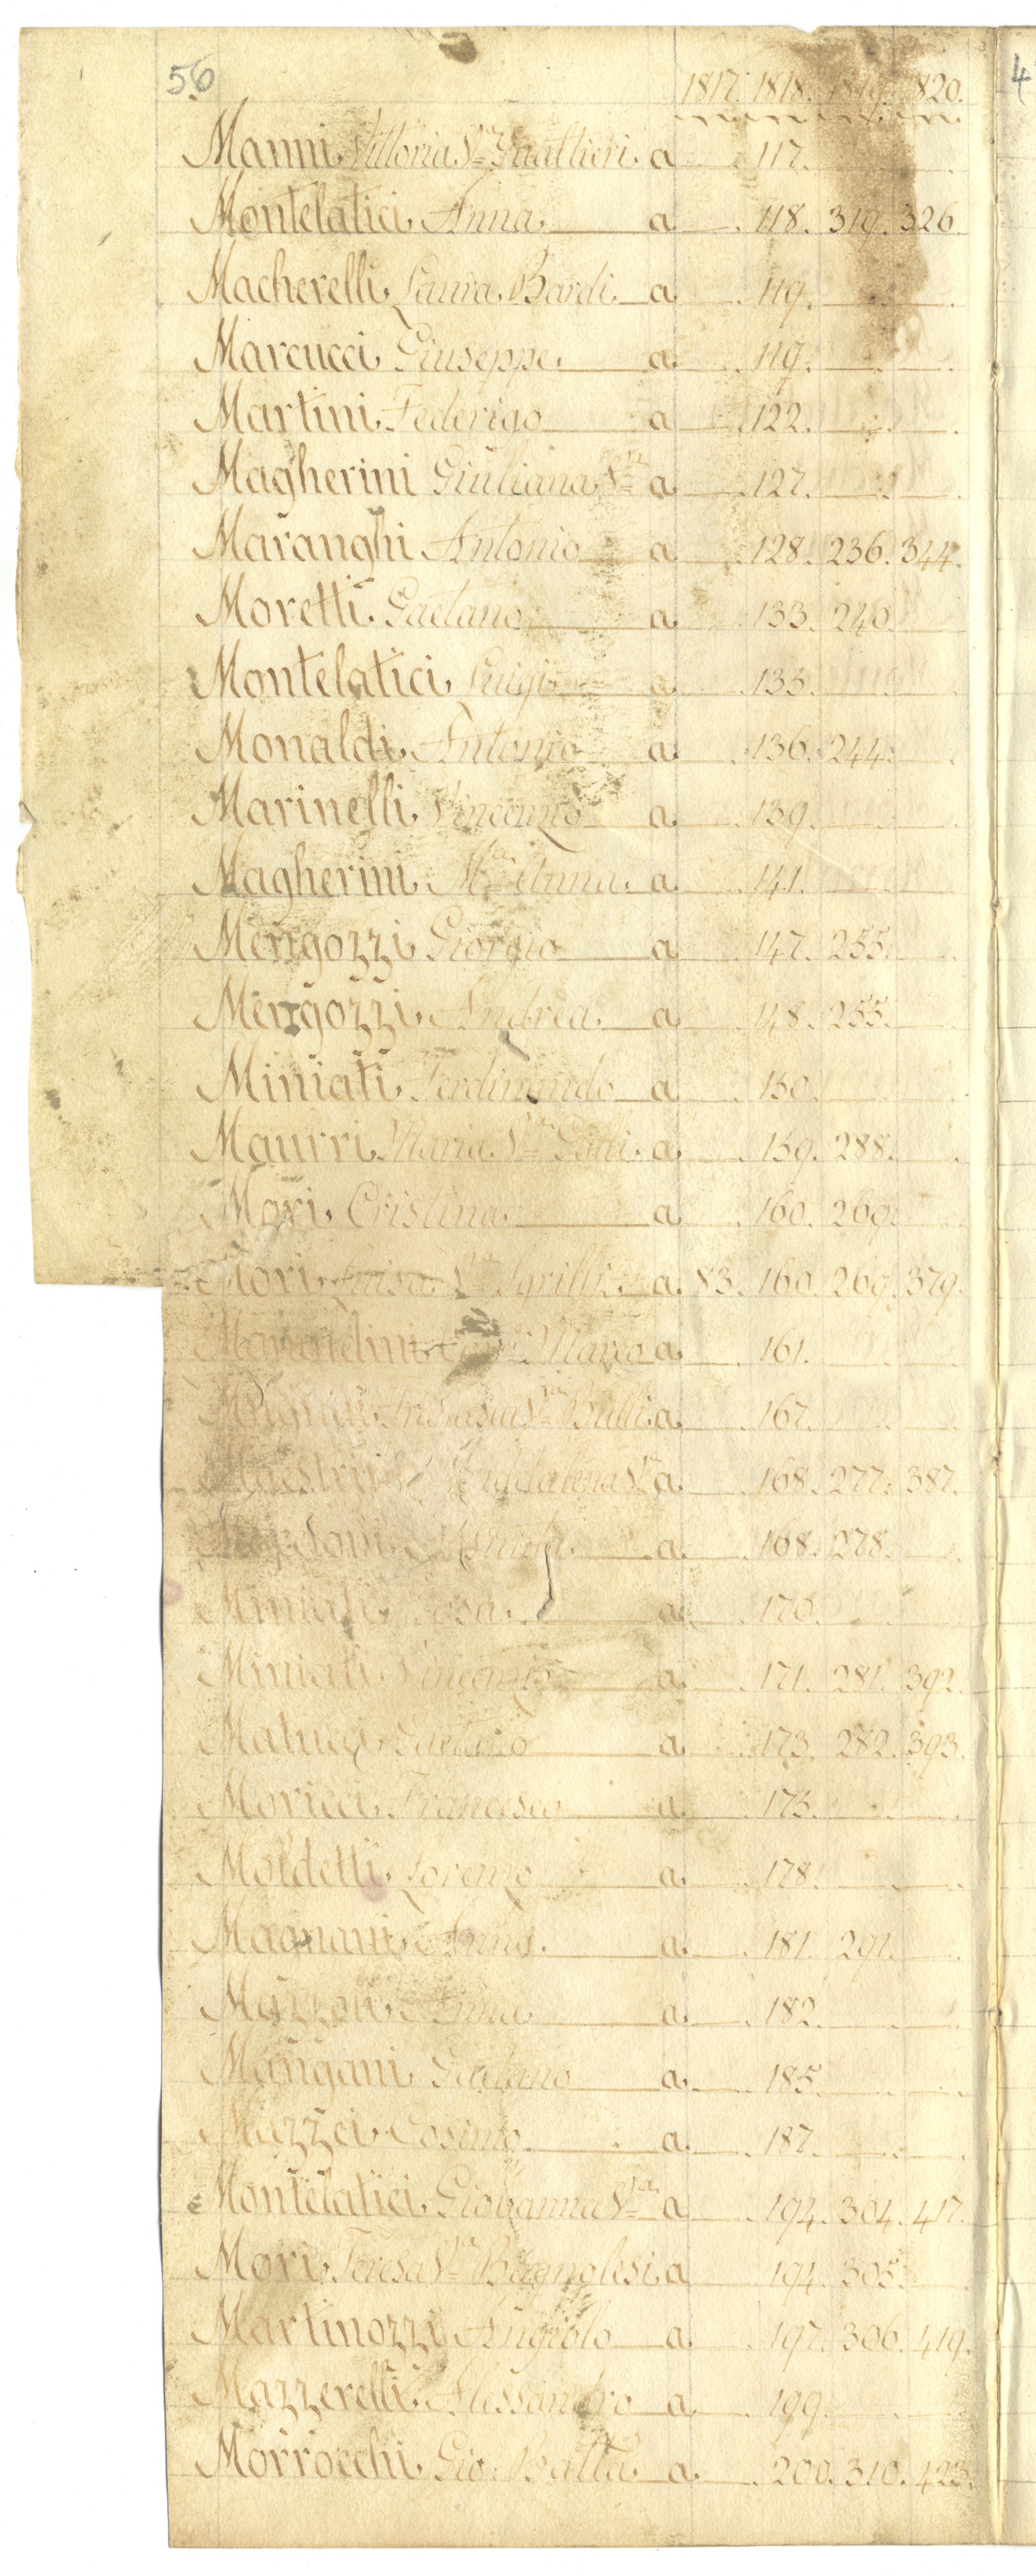 56
1817. 1818. 1819. 1820.
4
Manni Vittoria Va Gualtieri a 117.
Montelatici Anna a 118. 319. 326.
Macherelli Laura Bardi a 119.
Marcucci Giuseppe a 119.
Martini Federigo a 122.
Magherini Giuliana Va a 127.
Maranghi Antonio a 128. 236. 344.
Moretti Gaetano a 133. 240.
Montelatici Luigi a 135.
Monaldi Antonio a 136. 244.
Marinelli Vincenzio a 139.
Magherini Ma Anna a 141.
Mengozzi Giorgio a 147. 255.
Mengozzi Andrea a 148. 255.
Miniati Ferdinando a 150.
Maurri Maria Va Galli a 159. 288.
Mori Cristina a 160. 269.
Mori Luisa Va Sgrilli a 83. 160. 269. 379.
Marco a 161.
Va Bulli a 167.
Maestrini Maddalena Va a 168. 277. 387.
a 168. 278.
Miniati Rosa a 170.
Miniati Vincenzio a 171. 281. 392.
Matucci Gaetano a 173. 282. 393.
Moricci Francesco a 175.
Moldetti Lorenzo a 178.
Magnani Anna a 181. 291.
Mazzoni Anna a 182.
Mangani Gaetano a 185.
Mazzei Cosimo a 187.
Montelatici Giovanna Va a 194. 304. 417.
Mori Teresa Va Bagnolesi a 194. 305.
Martinozzi Angiolo a 197. 306. 419.
Mazzerelli Alessandro a 199.
Morrocchi Gio Batta a 200. 310. 423.